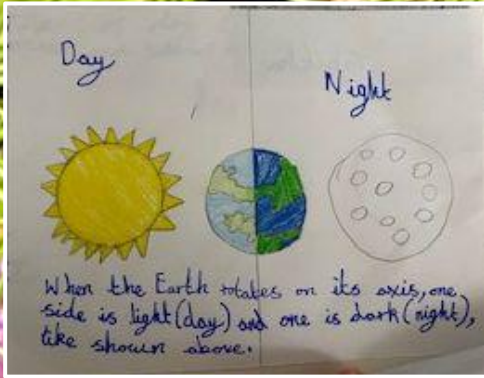 Day
Night
When the Earth rotates on its axis, one
side is light (day) and one is dark (night),
like shown above.